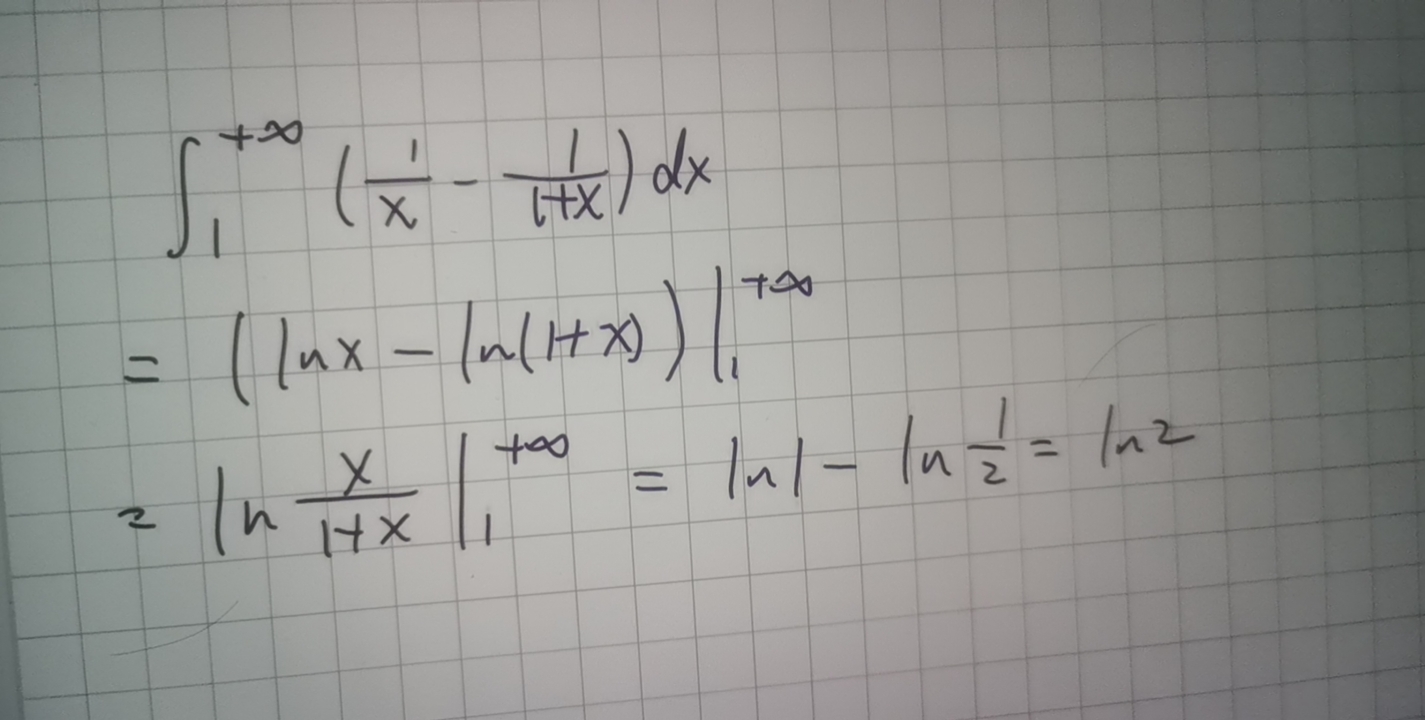 ∫₁^{+∞} (1/x - 1/(1+x)) dx
= (ln x - ln(1+x)) |₁^{+∞}
= ln x/(1+x) |₁^{+∞} = ln 1 - ln 1/2 = ln 2